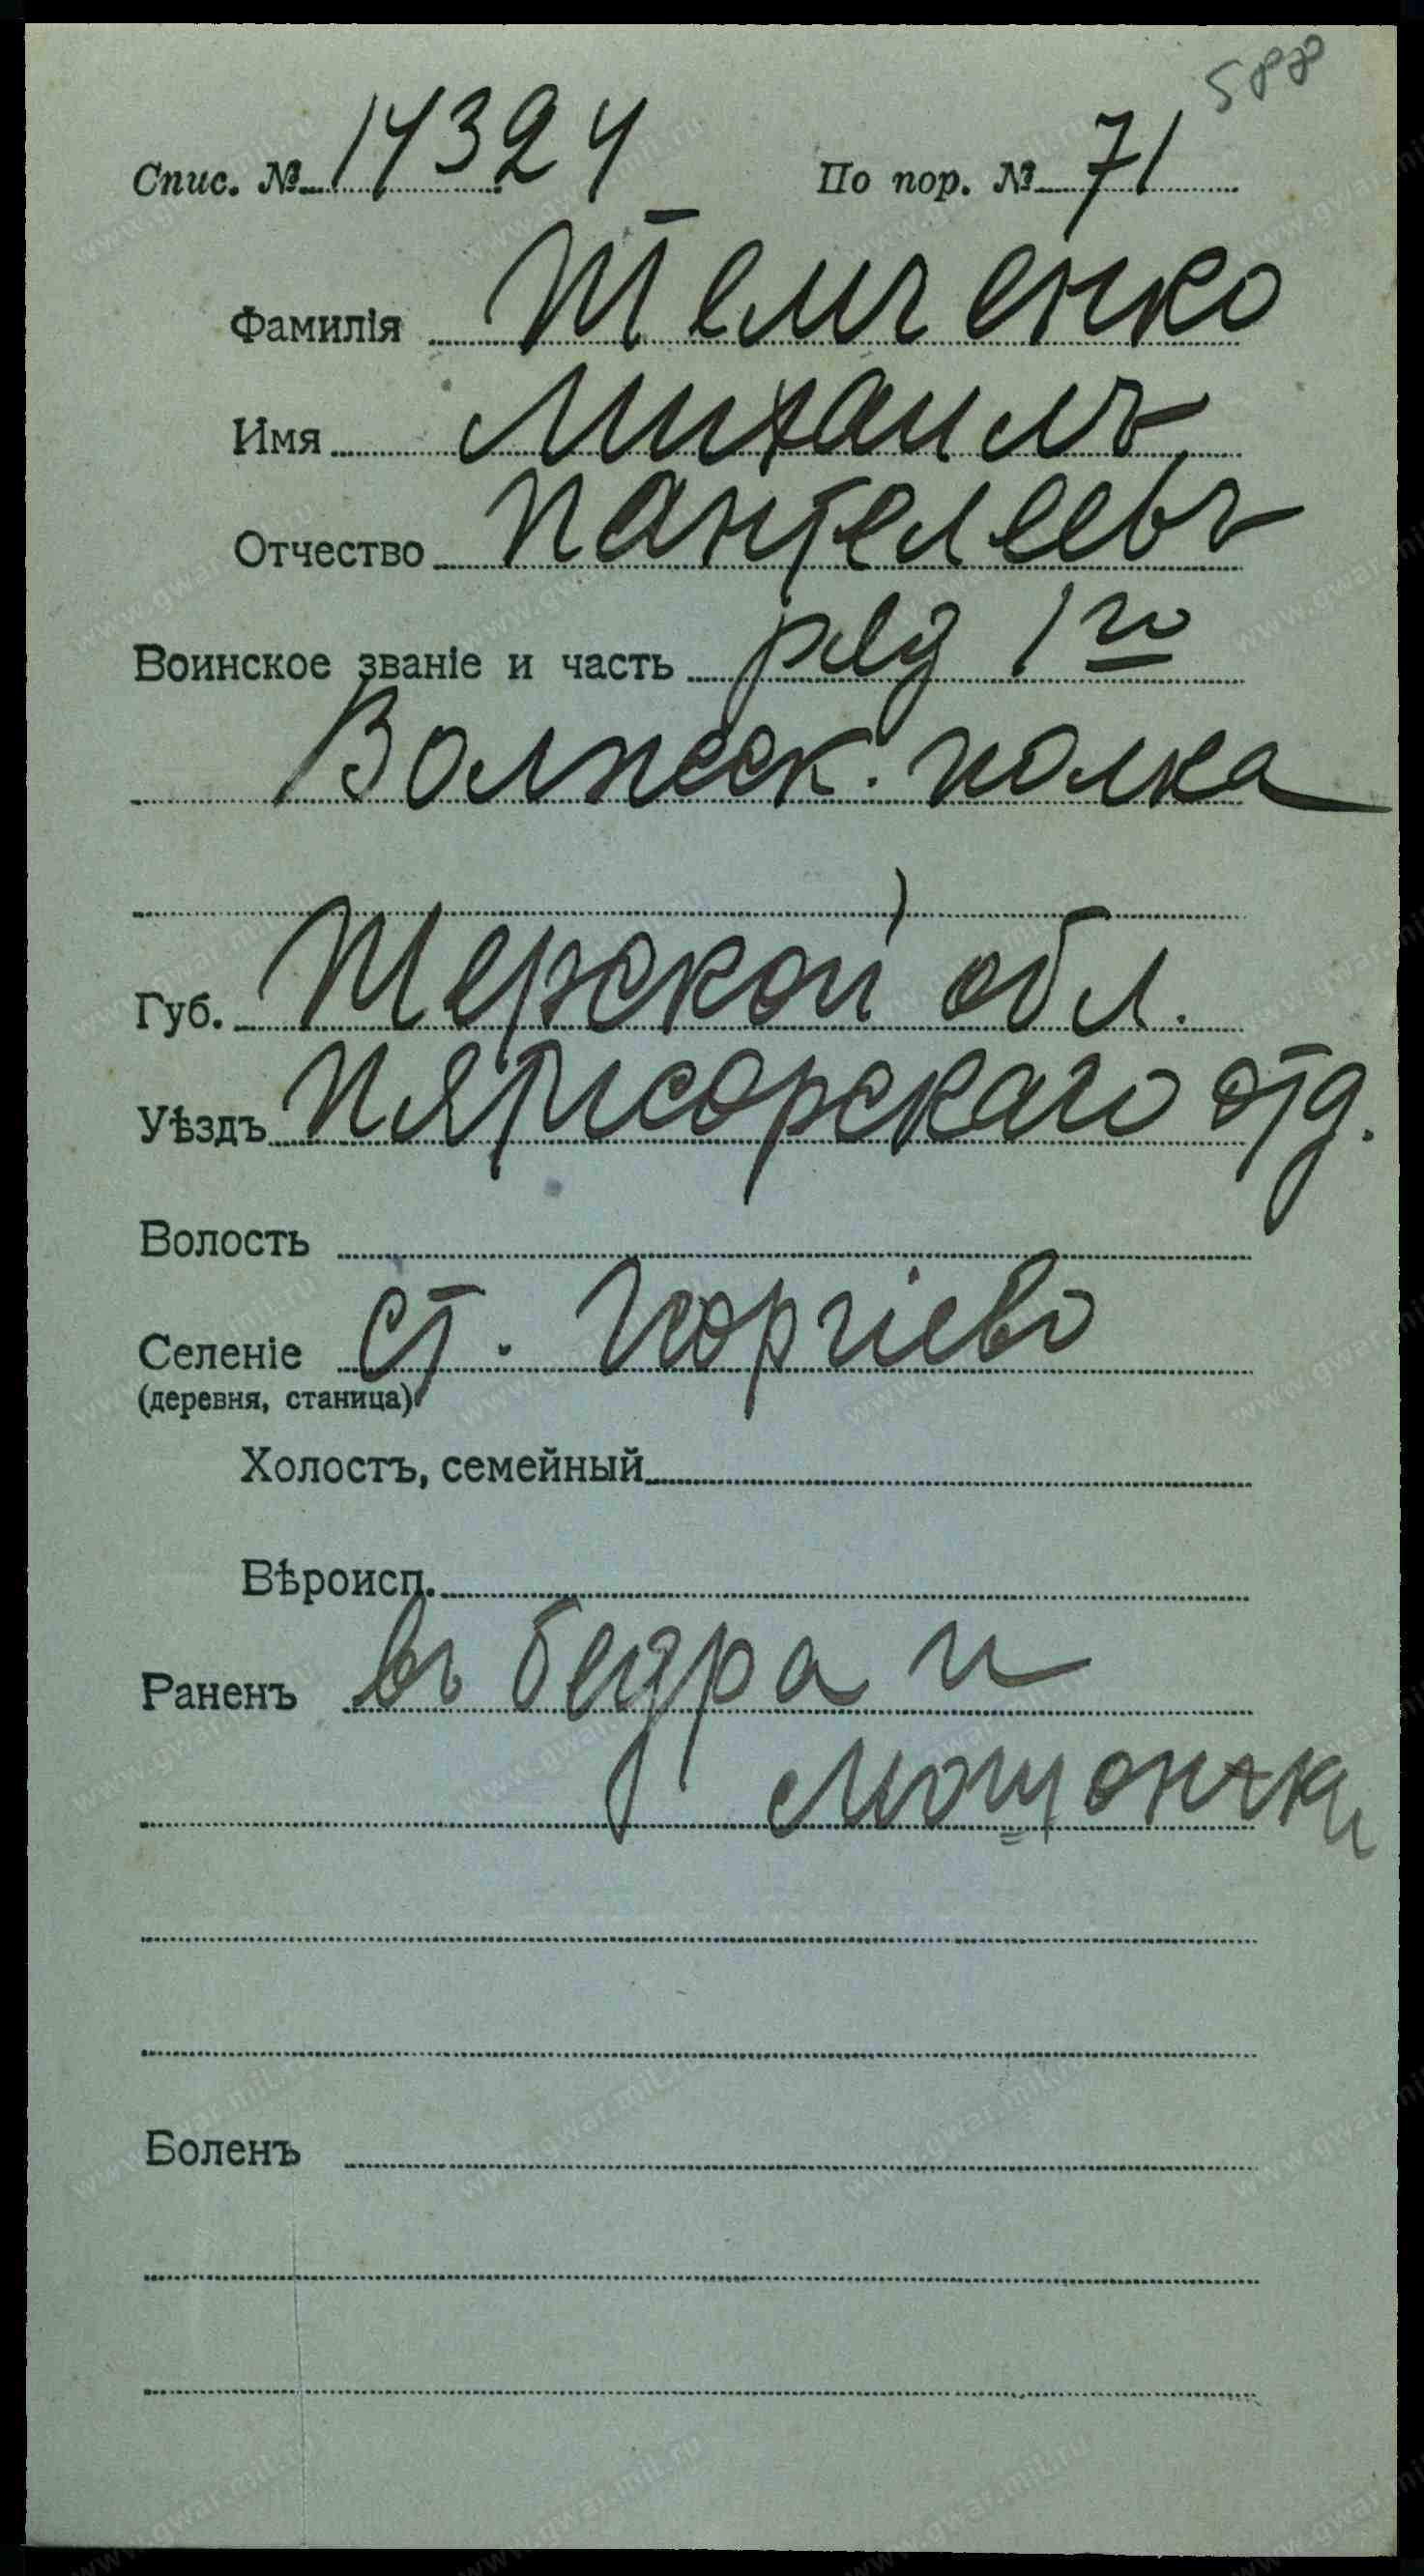 588
Спис. № 14324 По пор. № 71
Фамилія Темченко
Имя Михаилъ
Отчество Пантелеевъ
Воинское званіе и часть ряд 1го
Волжск. полка
Губ. Терской обл.
Уѣздъ Пятигорскаго отд.
Волость
Селеніе ст. Георгіево
(деревня, станица)
Холостъ, семейный
Вѣроисп.
Раненъ въ бедра и
мошонки
Боленъ
www.gwar.mil.ru